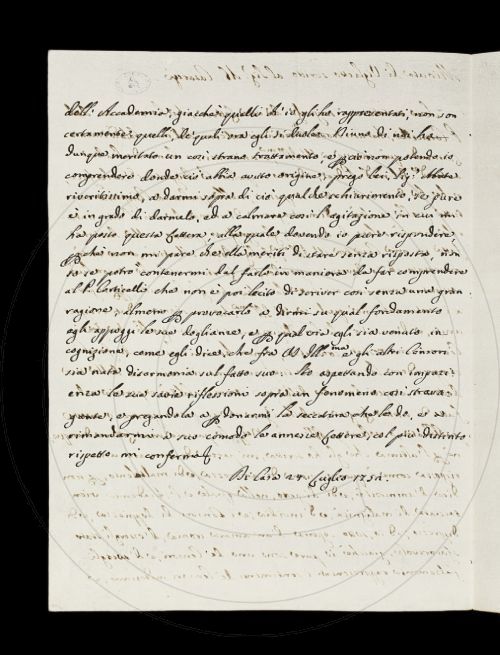 dell'Accademia, giacchè quelli ch'io gli ho rappresentati, non son
certamente quelli, de' quali ora egli si duole. Niuno di noi ha
dunque meritato un così strano trattamento, e per ciò non potendo io
comprendere donde ciò abbia avuto origine, prego Lei, Sig.r Abate
riveritissimo, a darmi sopra di ciò qualche rischiarimento, se pure
è in grado di darmelo, ed a calmare così l'agitazione in cui mi
ha posto questa Lettera, alla quale dovendo io pure rispondere,
perchè non mi pare che ella meriti di stare senza risposta, non
so se potrò contenermi dal farlo in maniera da far comprendere
al P. Corticelli che non è poi lecito di scriver così senza una gran
ragione, almeno per provocarlo a dirmi su qual fondamento
egli appoggi le sue doglianze, e per qual via egli sia venuto in
cognizione, come egli dice, che fra VS Ill.ma e gli altri Censori
sia nata disarmonia sul fatto suo. Sto aspettando con impazi-
enza le sue savie riflessioni sopra un fenomeno così strava-
gante, e pregandola a perdonarmi la seccatura che le do, e a
rimandarmi a suo comodo le annesse Lettere, col più distinto
rispetto mi confermo
Di Casa 28 Luglio 1754.